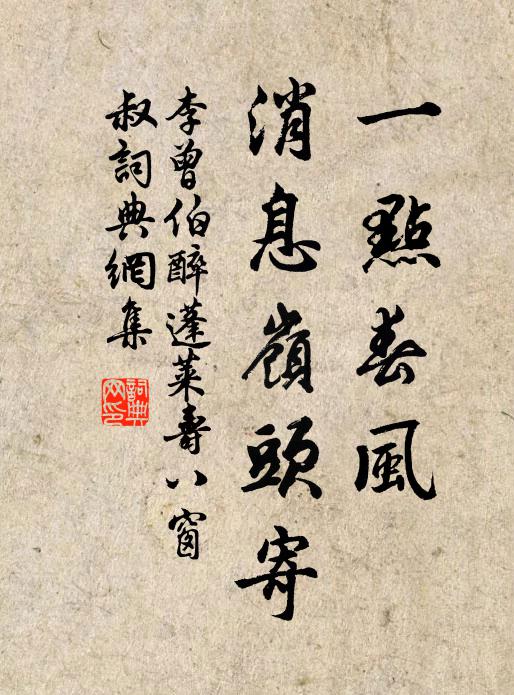 一點春風
消息嶺頭寄
李曾伯醉蓬萊壽八窗
叔詞典網集
詞典網印